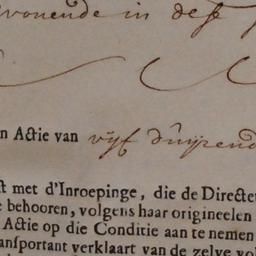 wonende in dese
n Actie van vijf duijzend
t met d'Inroepinge, die de Directe
e behooren, volgens haar origineelen
Actie op die Conditie aan te nemen
ansportant verklaart van de zelve vol